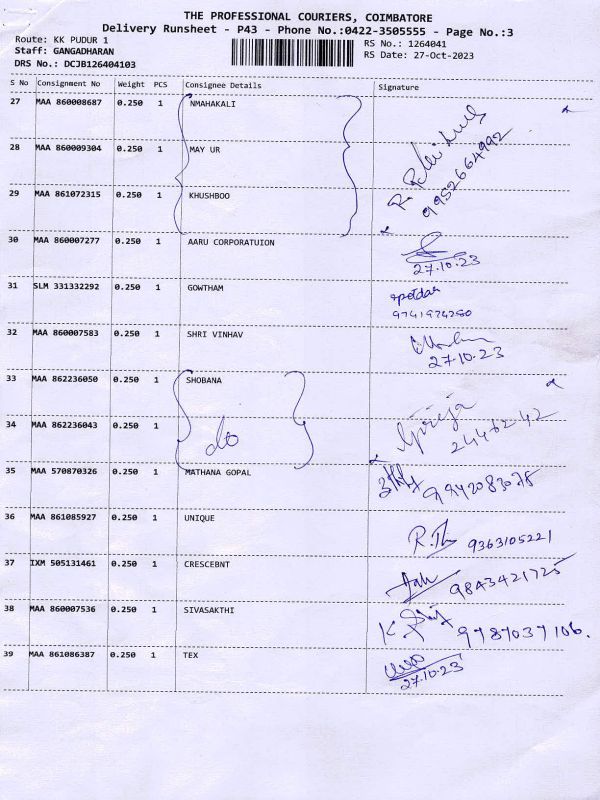 THE PROFESSIONAL COURIERS, COIMBATORE
Delivery Runsheet - P43 - Phone No.:0422-3505555 - Page No.:3
Route: KK PUDUR 1
RS No.: 1264041
Staff: GANGADHARAN
RS Date: 27-Oct-2023
DRS No.: DCJB126404103
S No Consignment No Weight PCS Consignee Details Signature
27 MAA 860008687 0.250 1 NMAHAKALI
28 MAA 860009304 0.250 1 MAY UR
9952664992
29 MAA 861072315 0.250 1 KHUSHBOO
30 MAA 860007277 0.250 1 AARU CORPORATUION
27.10.23
31 SLM 331332292 0.250 1 GOWTHAM
9741974280
32 MAA 860007583 0.250 1 SHRI VINHAV
27.10.23
33 MAA 862236050 0.250 1 SHOBANA
34 MAA 862236043 0.250 1 do Girija
2446242
35 MAA 570870326 0.250 1 MATHANA GOPAL 9942083078
36 MAA 861085927 0.250 1 UNIQUE
9363105221
37 IXM 505131461 0.250 1 CRESCEBNT
9843421725
38 MAA 860007536 0.250 1 SIVASAKTHI
9787037106.
39 MAA 861086387 0.250 1 TEX
27.10.23